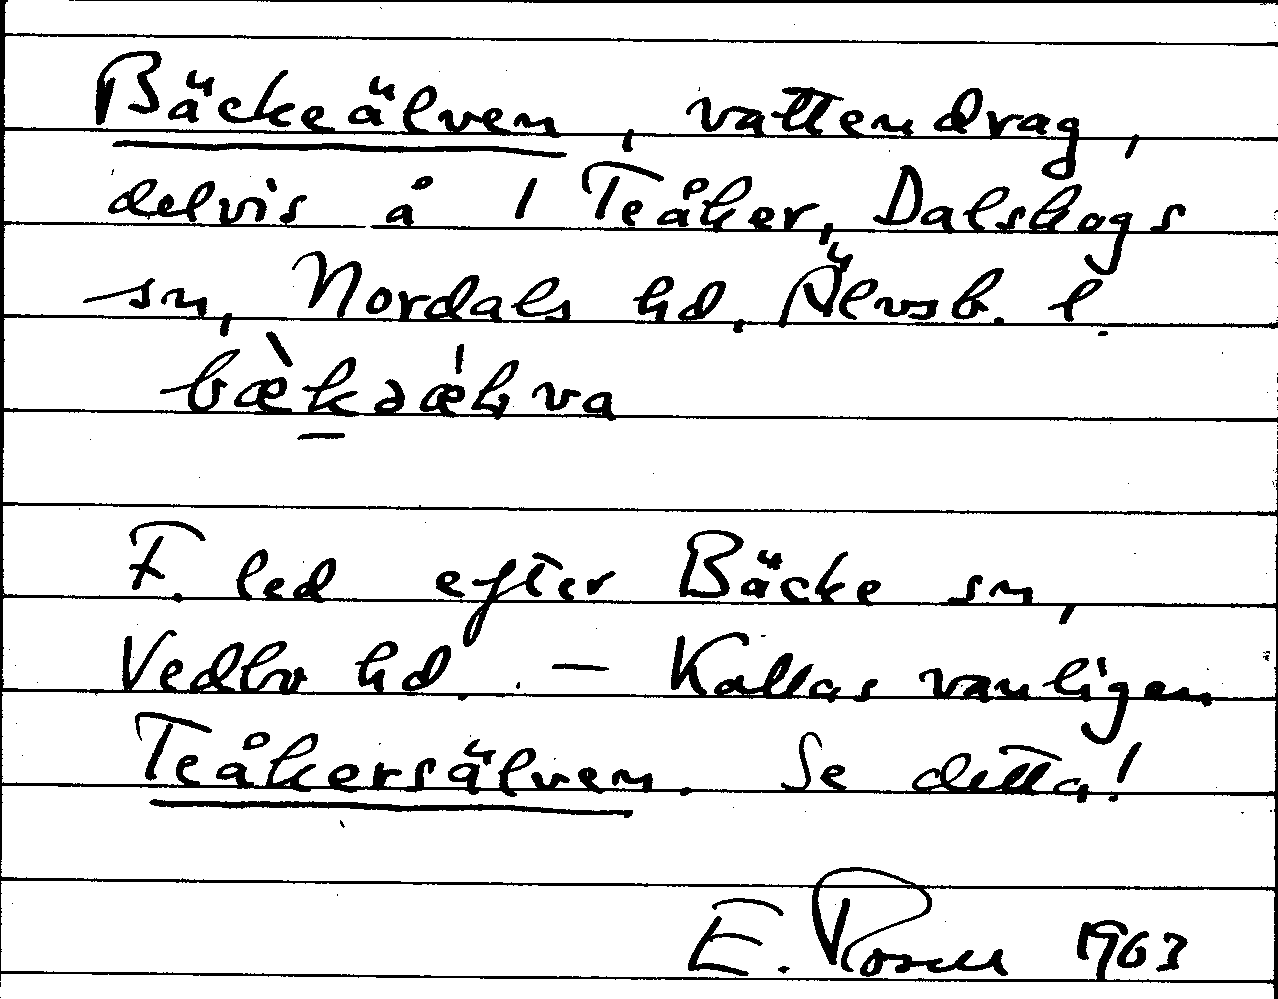 Bäckeälven, vattendrag,
delvis å i Teåker, Dalskogs
sn, Nordals hd, Älvsb. l.
bæ̀kəǽlva
F. led efter Bäcke sn,
Vedbo hd. — Kallas vanligen
Teåkersälven. Se detta!
E. Rosell 1963